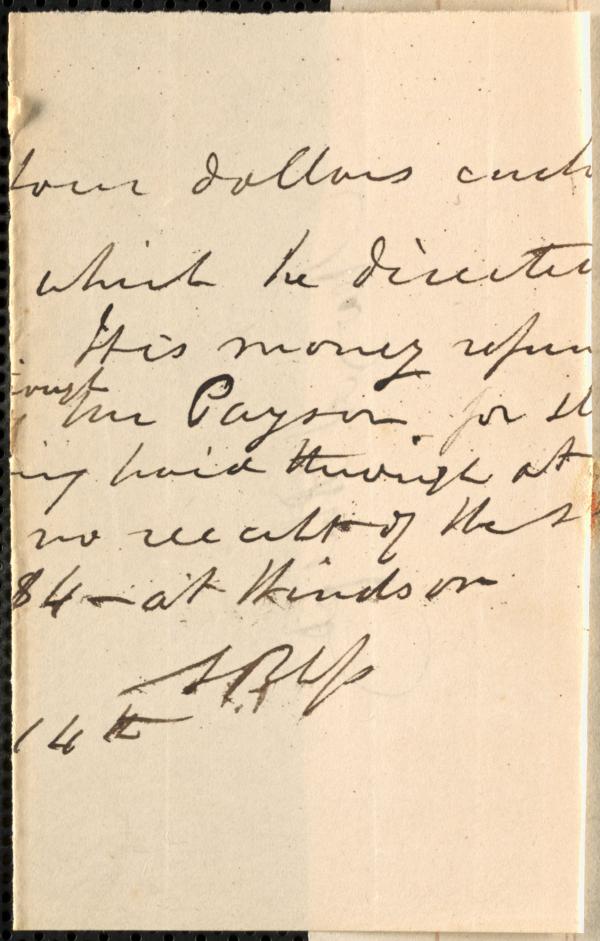 four dollars each
which he directed
His money refun
ough
Mr Payson for th
ing paid through at
no recalt of the
84 - at Windsor
14th